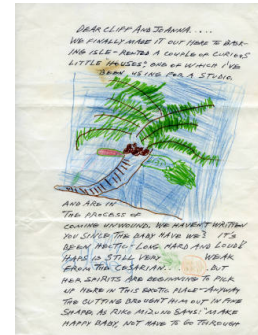 DEAR CLIFF AND JOANNA.....
WE FINALLY MADE IT OUT HERE TO BARK-
ING ISLE - RENTED A COUPLE OF CURIOUS
LITTLE HOUSES, ONE OF WHICH I'VE
BEEN USING FOR A STUDIO.
AND ARE IN
THE PROCESS OF
COMING UNWOUND. WE HAVEN'T WRITTEN
YOU SINCE THE BABY HAVE WE? IT'S
BEEN HECTIC! LONG, HARD AND LOUD!
IS STILL VERY WEAK
FROM THE CESARIAN........BUT
HER SPIRITS ARE BEGINNING TO PICK
UP HERE IN THIS EXOTIC PLACE - ANYWAY
THE CUTTING BROUGHT HIM OUT IN FINE
SHAPE. AS RIKO MIZUNO SAYS: "MAKE
HAPPY BABY, NOT HAVE TO GO THROUGH